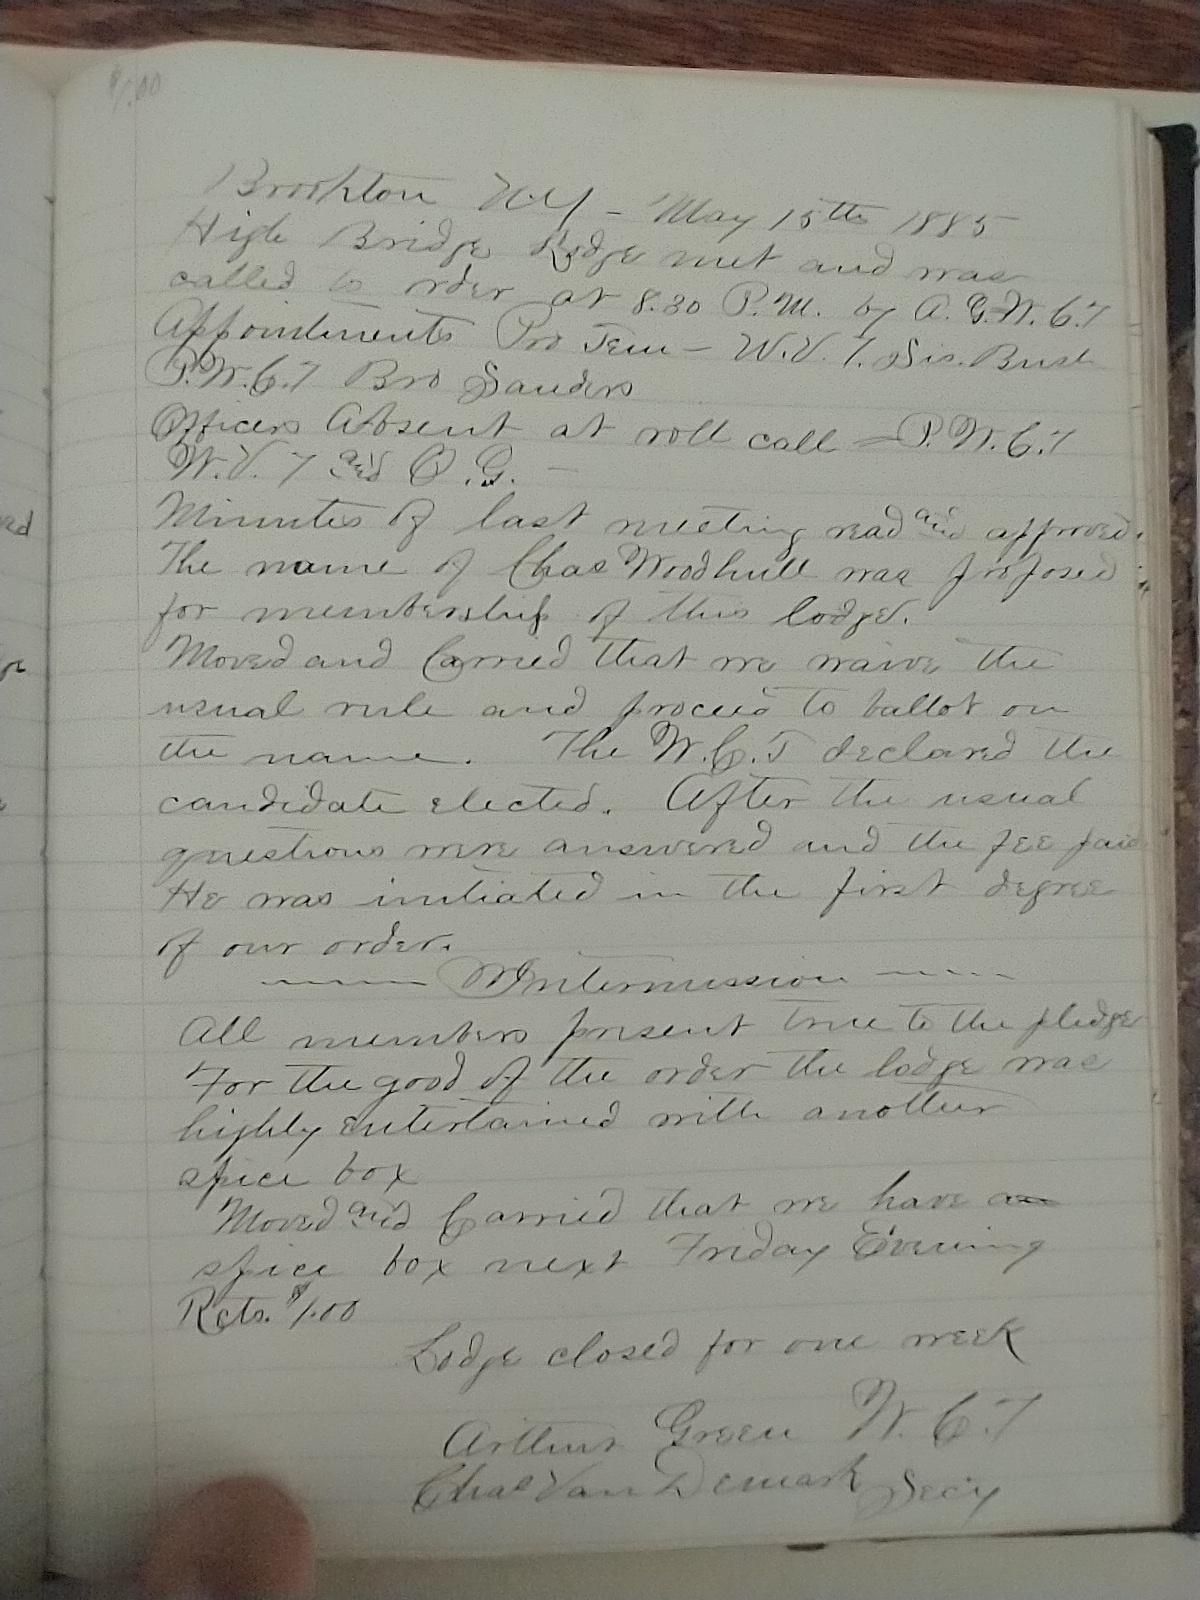 $1.00
Brookton N.Y - May 15th 1885
High Bridge Lodge met and was
called to order at 8.30 P.M. by A. G. W. C. T
Appointments Pro Tem - W. V. T. Sis. Bush
P. W. C. T Bro Sanders
Officers Absent at roll call = P. W. C. T
W. V. T and O. G. -
Minutes of last meeting read and approved.
The name of Chas Woodhull was proposed
for membership of this lodge.
Moved and Carried that we waive the
usual rule and proceed to ballot on
the name. The W. C. T declared the
candidate elected. After the usual
questions were answered and the fee paid
He was initiated in the first degree
of our order.
Intermission
All members present true to the pledge
For the good of the order the lodge was
highly entertained with another
spice box
Moved and Carried that we have a
spice box next Friday Evening
Rcts. $1.00
Lodge closed for one week
Arthur Green W. C. T
Chas Van Demark Secy